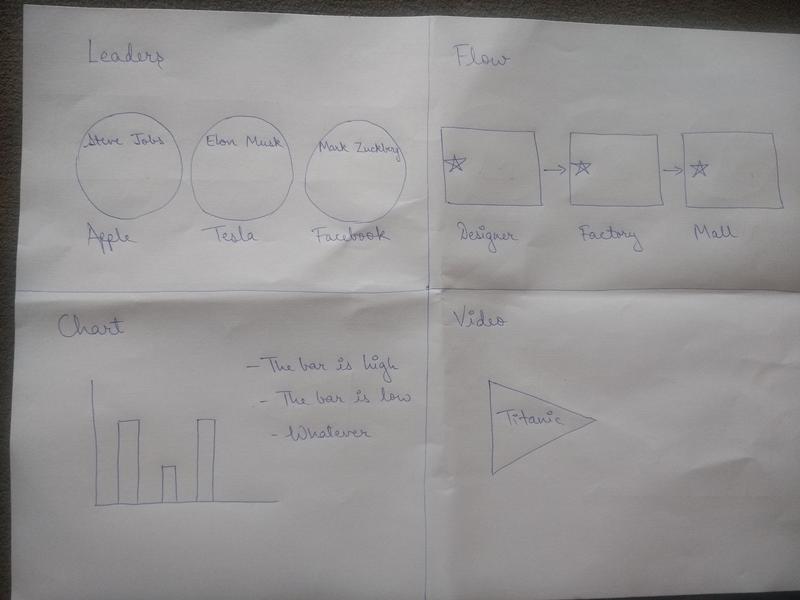 Leaders
Steve Jobs
Elon Musk
Mark Zuckbrg
Apple
Tesla
Facebook
Flow
Designer
Factory
Mall
Chart
- The bar is high
- The bar is low
- Whatever
Video
Titanic